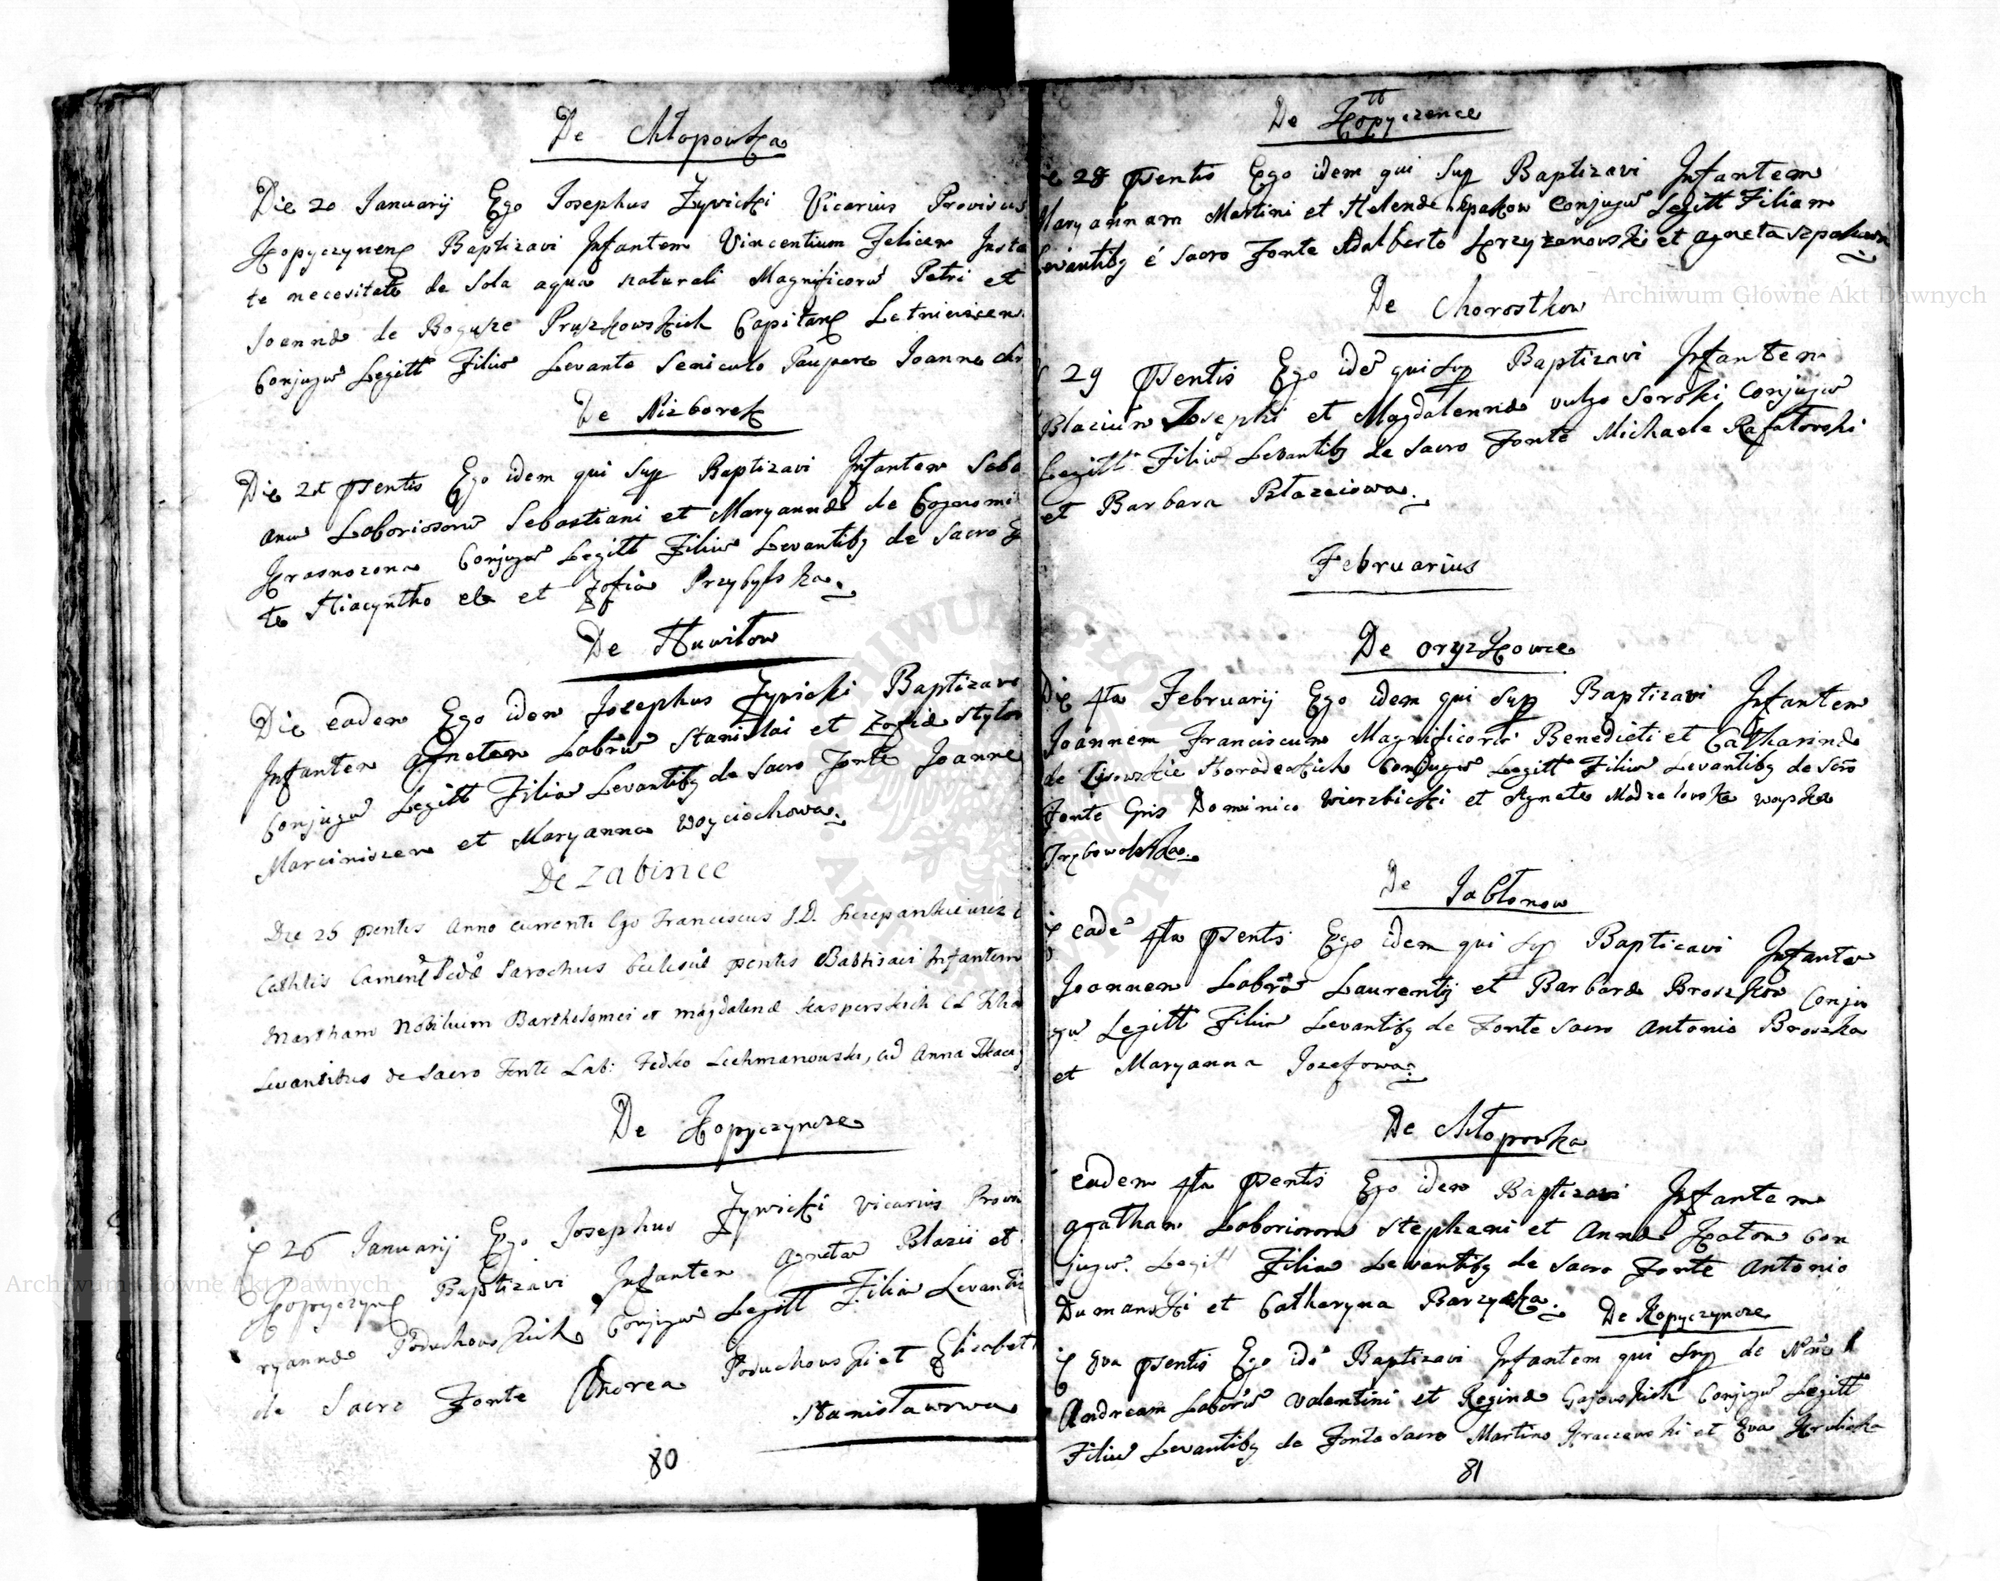 De Chłopowka
Die 20 Januarij Ego Josephus Zywicki Vicarius Provisus
Kopyczynen Baptizavi Infantem Vincentium Felicem Insta
te necesitate de Sola aqua naturali Magnificorũ Petri et
Joennæ de Boguſze Pruſzkowskich Capitan Letniczen
Conjugũ Legitt Filiũ Levante Seniculo Paupere Joanne
De Nizborek
Die 21 Psentis Ego idem qui Sup Baptizavi Infantem Seba
anũ Laboriosorũ Sebastiani et Maryannæ de Cognomi
Krasnozona Conjugũ Legitt Filiũ Levantibz de Sacro
te Hiacyntho et Zofia Przybyſzka.
De Huwiłow
Die eadem Ego idem Josephus Zywicki Baptizavi
Infantem Agnetem Labrũ Stanislai et Zofiæ
Conjugũ Legitt Filiã Levantibz de Sacro Fonte Joanne
Marciniszen et Maryanna Woyciechowa.
De Zabince
Die 26 psentis Anno currenti Ego Franciscus J.D. Szczepankiewicz
Cathlis Camene Parochus Ecclesiæ psentis Babtisavi Infantem
Martham Nobilium Bartholomei et Magdalenæ Kasperskich
Levantibus de Sacro Fonte Lab: Fedko Lechmanowski, ad Anna
De Kopyczynce
26 Januarij Ego Josephus Zywicki Vicarius Provi
Kopyczyn Baptizavi Infantem Agneta Blazii et
ryannæ Poduchowskich Conjugũ Legitt Filiã Levanti
de Sacro Fonte Andrea Poduchowski et Elizabeth
Stanisławowa
80
De Kopyczence
28 Psentis Ego idem qui Sup Baptizavi Infantem
Maryannam Martini et Helenæ Szpakow Conjugũ Legitt Filiam
Levantibz é Sacro Fonte Adalberto Krzyzanowski et Agneta Szpakowa
De Chorostkow
29 Psentis Ego idẽ qui Sup Baptizavi Infantem
Blazium Josephi et Magdalennæ vulgo Soroki Conjugũ
Legitt Filiũ Levantibz de Sacro Fonte Michaele Rafałowski
et Barbara Błazeiowa.
Februarius
De Oryszkowce
Die 4ta Februarij Ego idem qui Sup Baptizavi Infantem
Joannem Franciscum Magnificorũ Benedicti et Catharinæ
de Lisowskie Horodeckich Conjugũ Legitt Filiũ Levantibz de Scro
Fonte Gnis Dominico Wierzbicki et Agnete Madzelowska
De Jabłonow
eadẽ 4ta Psentis Ego idem qui Sup Baptizavi Infantem
Joannem Labrũ Laurentij et Barbaræ Broszkow Conju
gũ Legitt Filiũ Levantibz de Fonte Sacro Antonio Broszka
et Maryanna Jozefowa.
De Chłopowka
eadem 4ta Psentis Ego idem Baptizavi Infantem
Agatham Laboriorum Stephani et Annæ Katow Con
jugũ. Legitt Filiã Levantibz de Sacro Fonte Antonio
Dumanski et Catharyna Barzycka.
De Kopyczynce
8va Psentis Ego idẽ Baptizavi Infantem qui Sup de Nõie
Andream Laborũ Valentini et Reginæ Gajowskich Conjugũ Legitt
Filiũ Levantibz de Fonte Sacro Martino Kraczewski et Eva Krulicka
81
Archiwum Główne Akt Dawnych
Archiwum Główne Akt Dawnych